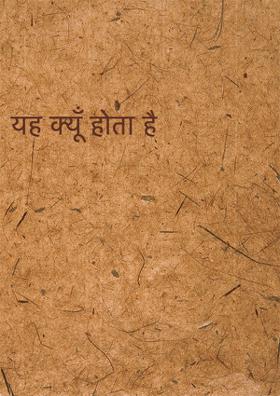 यह क्यूँ होता है